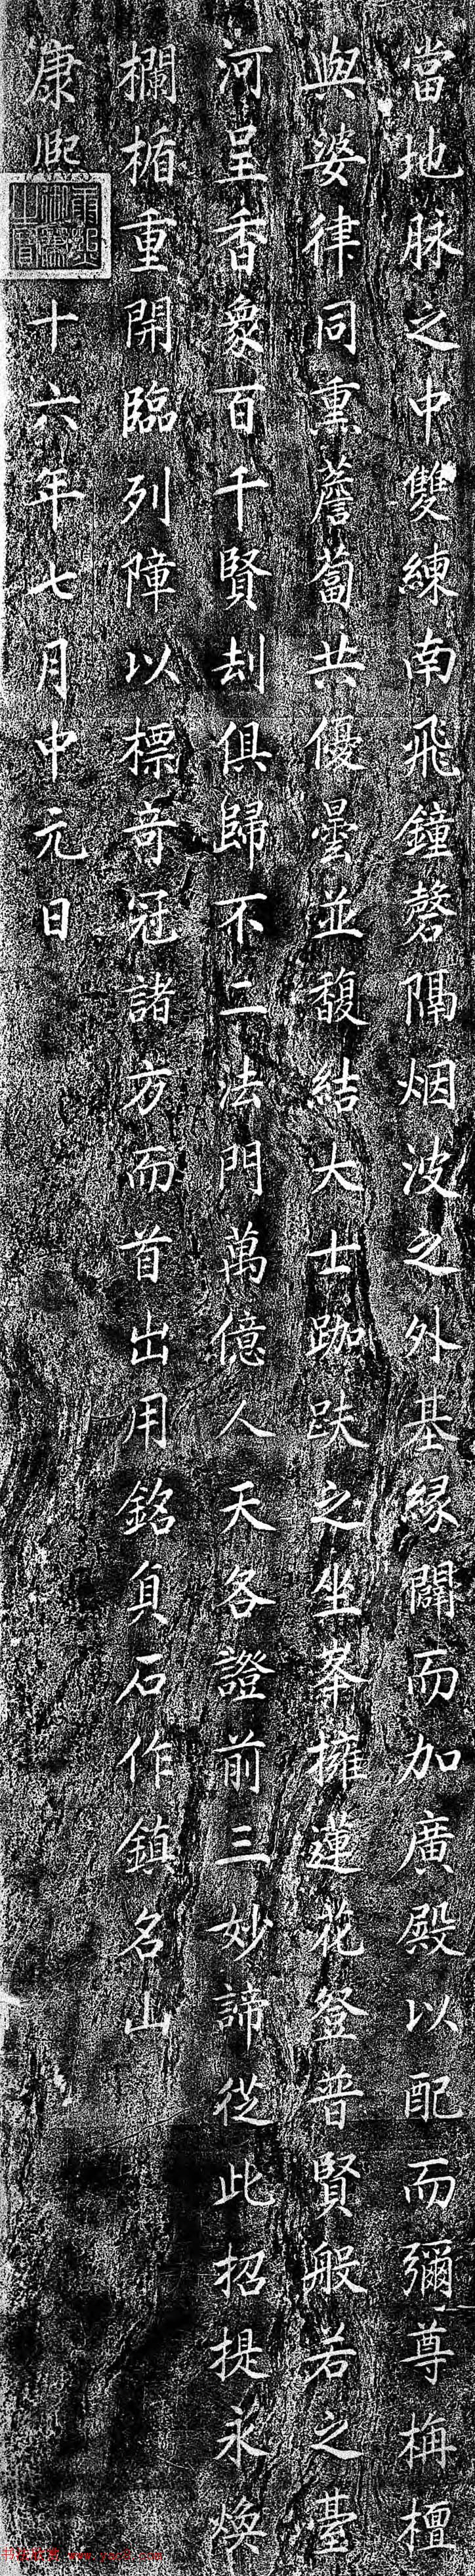 當地脉之中雙練南飛鐘磬隔烟波之外基緣闢而加廣殿以配而彌尊栴檀
與婆律同熏薝蔔共優曇並馥結大士跏趺之坐茎擁蓮花登普賢般若之臺
河呈香象百千賢刦俱歸不二法門萬億人天各證前三妙諦從此招提永煥
欄楯重開臨列障以標竒冠諸方而首出用銘貞石作鎮名山
康熙十六年七月中元日